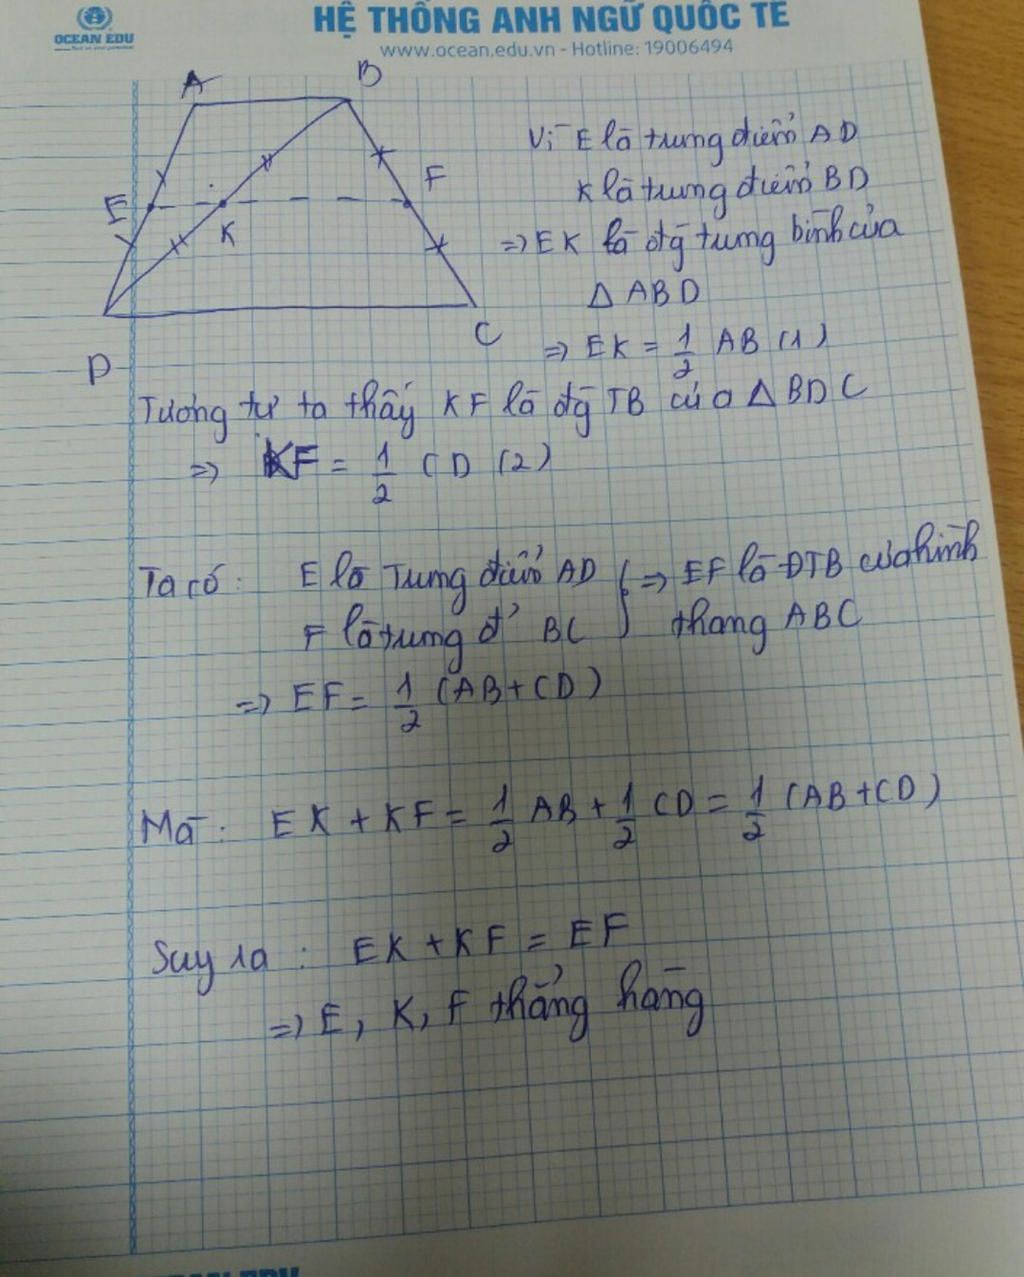 OCEAN EDU
HỆ THỐNG ANH NGỮ QUỐC TẾ
www.ocean.edu.vn - Hotline: 19006494
A
B
E
K
F
D
C
Vì E là trung điểm AD
K là trung điểm BD
=> EK là đg trung bình của
Δ ABD
=> EK = 1/2 AB (1)
Tương tự ta thấy KF là đg TB của Δ BDC
=> KF = 1/2 CD (2)
Ta có: E là Trung điểm AD } => EF là ĐTB của hình
F là trung đ' BC } thang ABC
=> EF = 1/2 (AB+CD)
Mà: EK + KF = 1/2 AB + 1/2 CD = 1/2 (AB+CD)
Suy ra: EK + KF = EF
=> E, K, F thẳng hàng